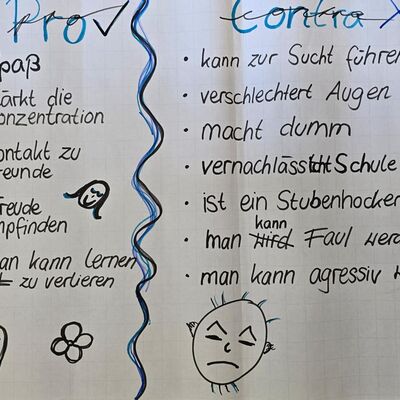 Pro
paß
tärkt die
onzentration
ontakt zu
reunde
reude
mpfinden
an kann lernen
zu verlieren
Contra
· kann zur Sucht führen
· verschlechtert Augen
· macht dumm
· Schule
· ist ein Stubenhocker
kann
· man wird Faul werd
· man kann agressiv